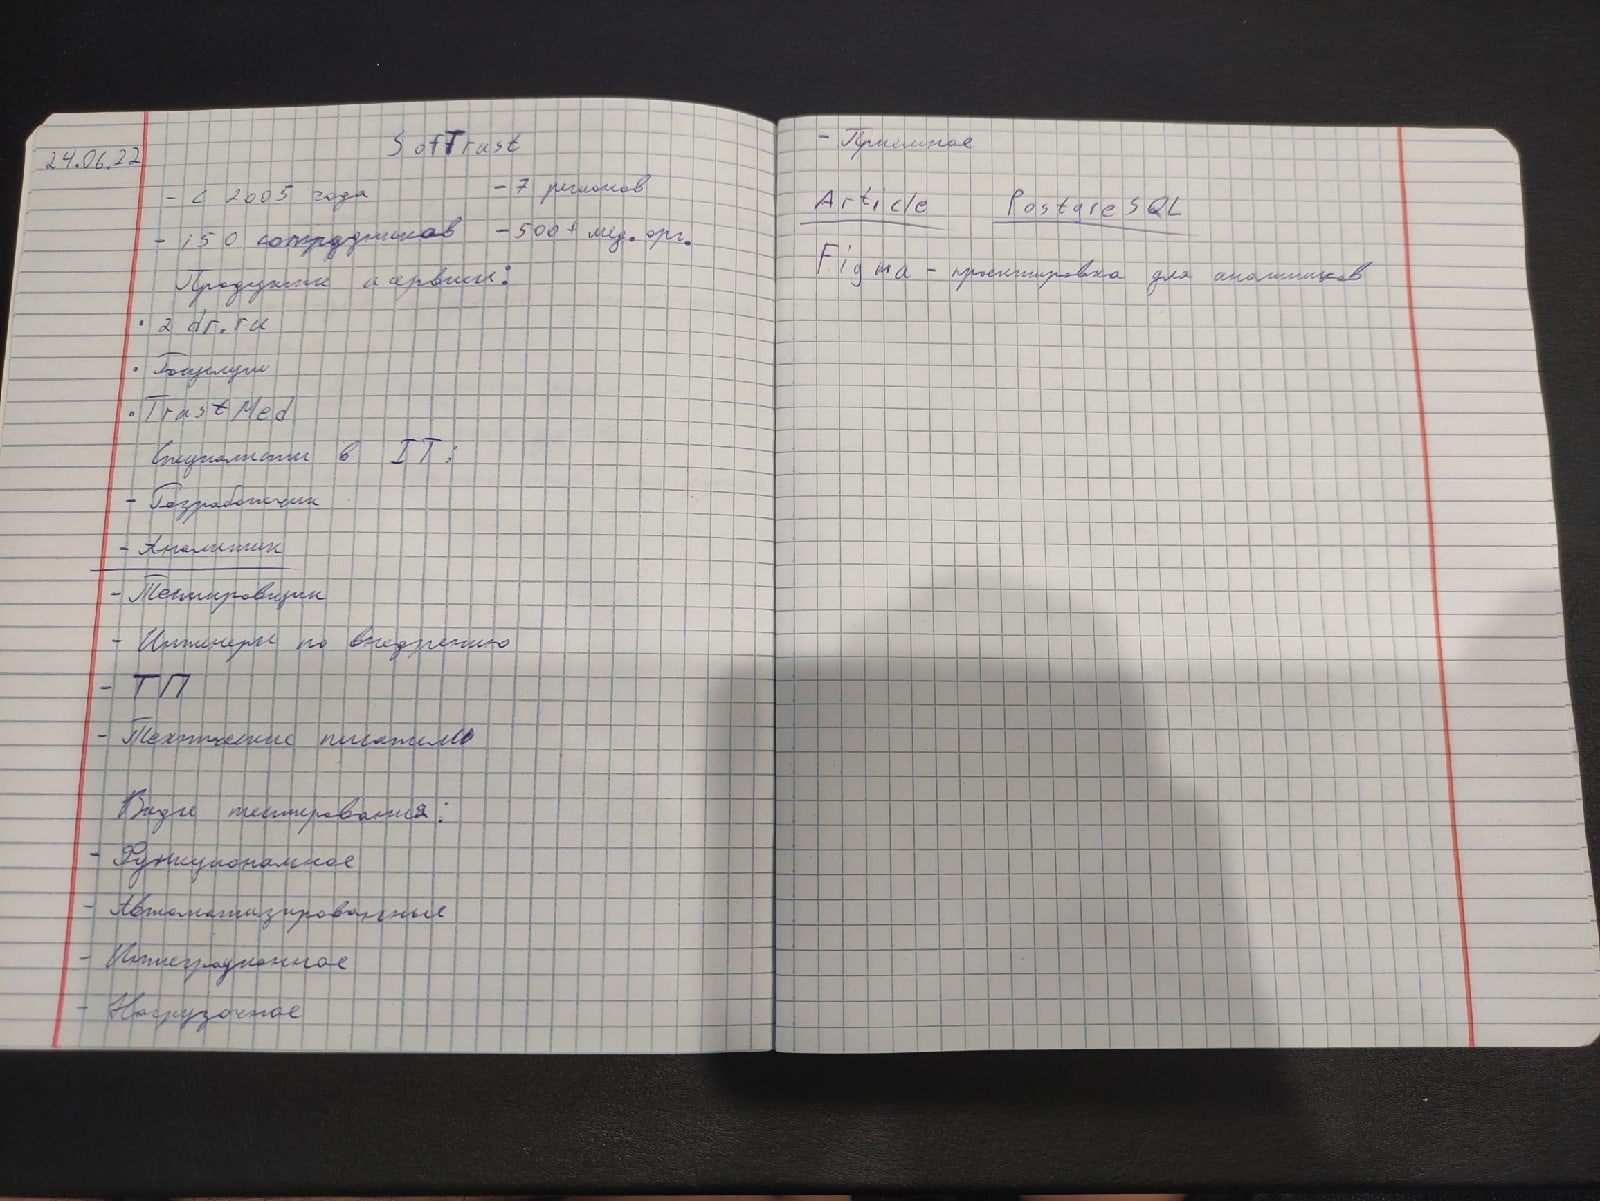 24.06.22
SofTrust
- с 2005 года - 7 регионов
- 150 сотрудников - 500+ мед. орг.
Продукты и сервисы:
• 2dr.ru
• Госуслуги
• TrastMed
Специалисты в IT:
- Разработчик
- Аналитик
- Тестировщик
- Инженеры по внедрению
- ТП
- Технические писатели
Виды тестирования:
- Функциональное
- Автоматизированные
- Интеграционное
- Нагрузочное
- Приемное
Article PostgreSQL
Figma - проектировка для аналитиков